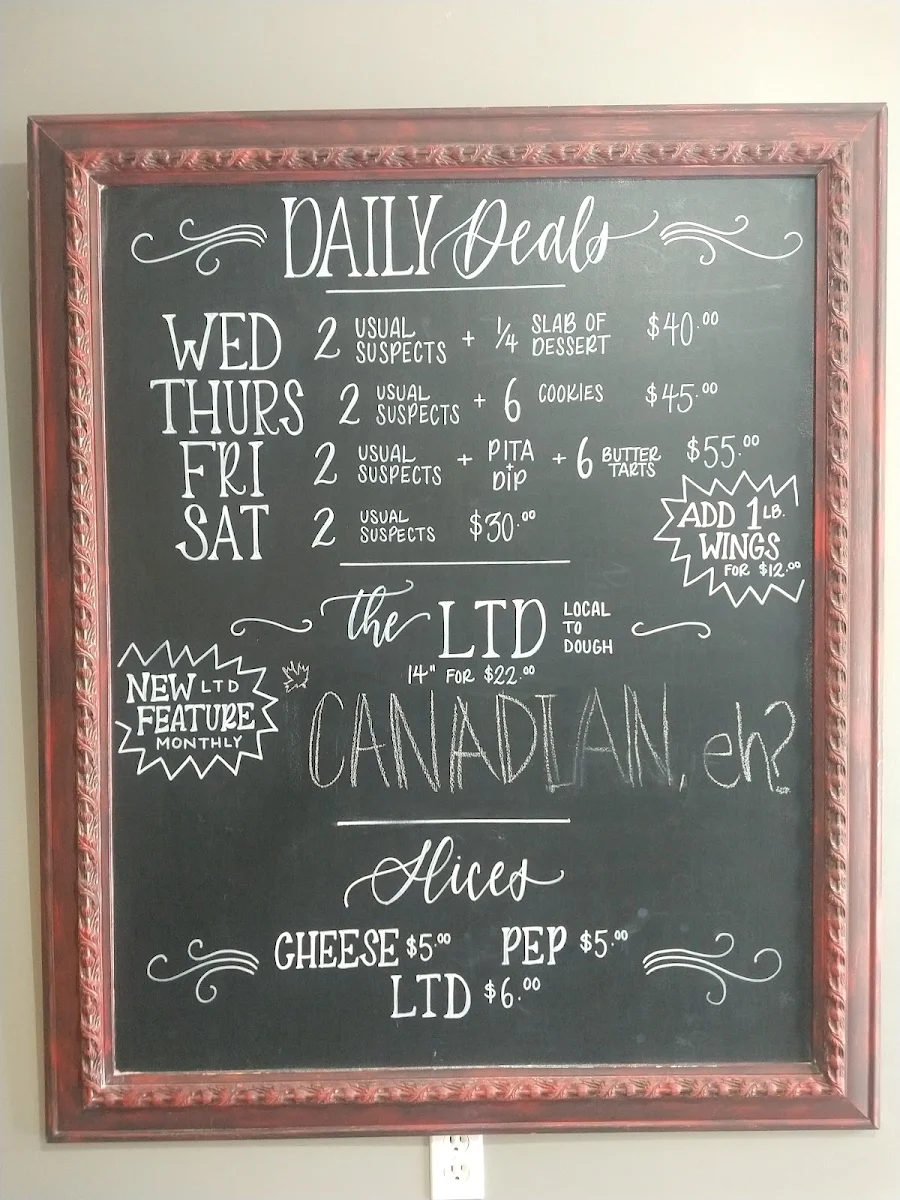 DAILY Deals
WED 2 USUAL SUSPECTS + 1/4 SLAB OF DESSERT $40.00
THURS 2 USUAL SUSPECTS + 6 COOKIES $45.00
FRI 2 USUAL SUSPECTS + PITA + DIP + 6 BUTTER TARTS $55.00
SAT 2 USUAL SUSPECTS $30.00
ADD 1 LB.
WINGS
FOR $12.00
the LTD LOCAL TO DOUGH
14" FOR $22.00
NEW LTD
FEATURE
MONTHLY
CANADIAN, eh?
Slices
CHEESE $5.00 PEP $5.00
LTD $6.00